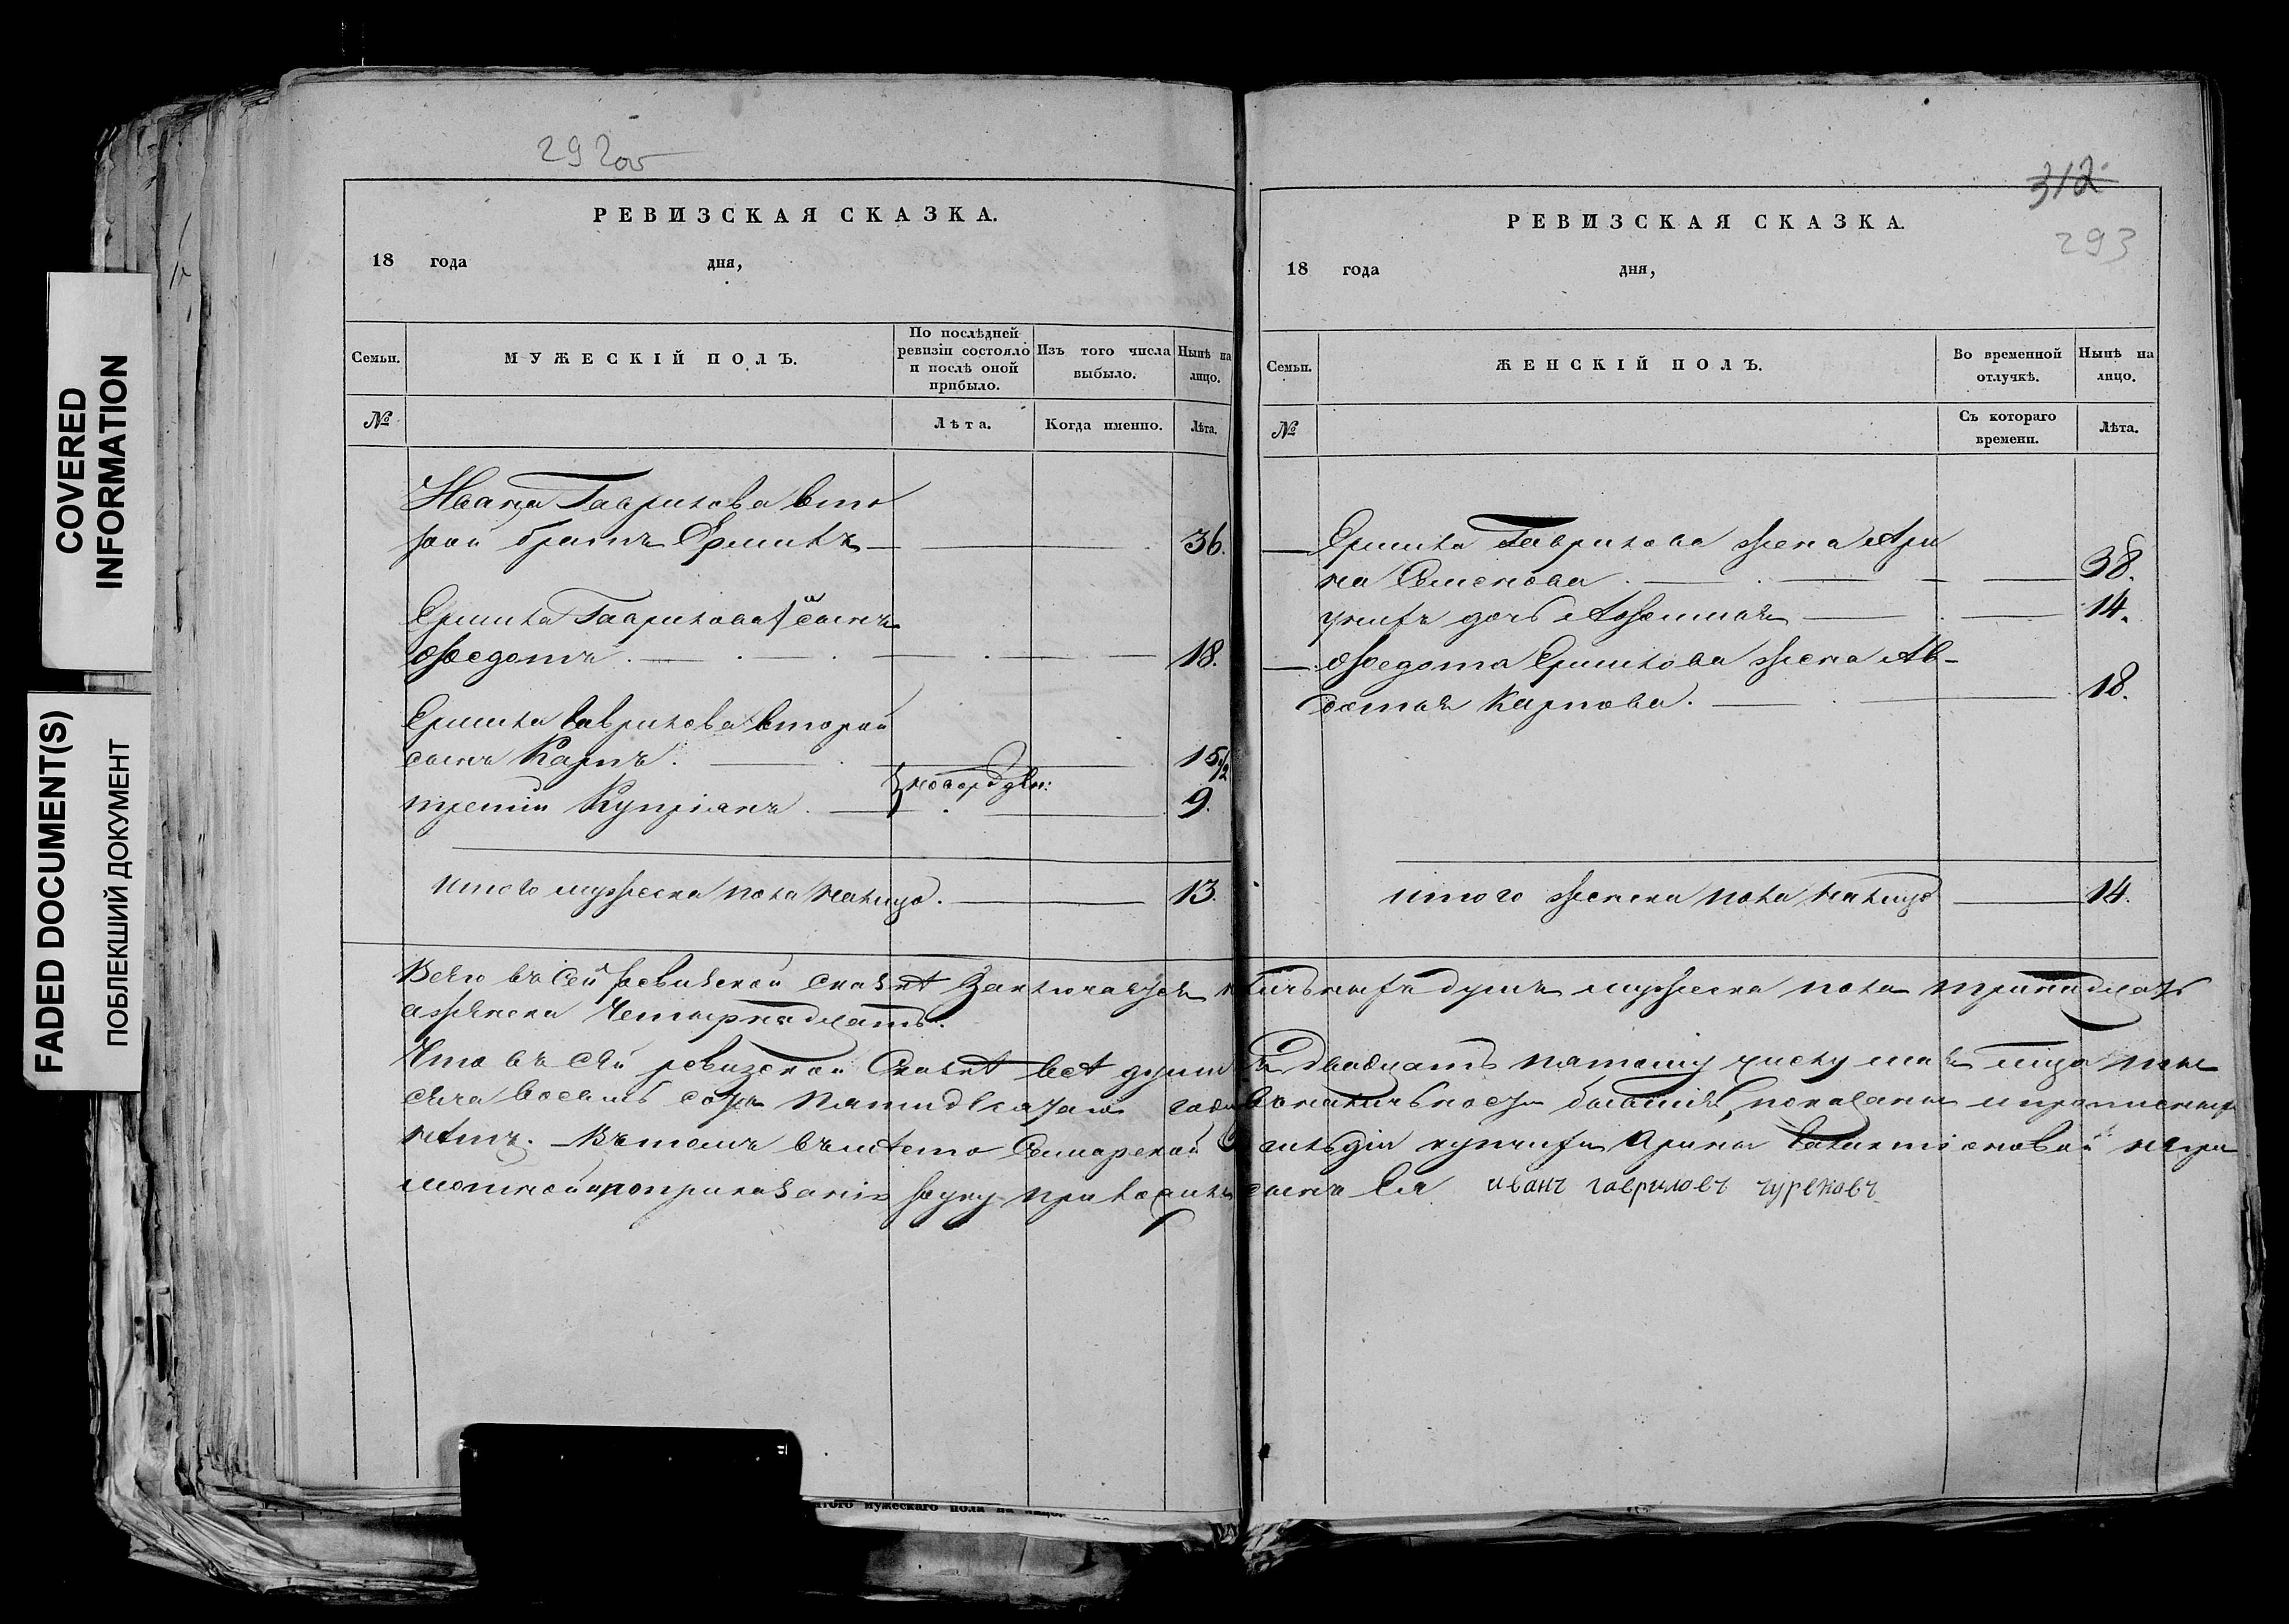 COVERED
INFORMATION
FADED DOCUMENT(S)
ПОБЛЕКШИЙ ДОКУМЕНТ
292об
РЕВИЗСКАЯ СКАЗКА.
18 года дня,
Семьи. МУЖЕСКІЙ ПОЛЪ. По послѣдней ревизіи состояло и послѣ оной прибыло. Изъ того числа выбыло. Нынѣ на лицо.
№ Лѣта. Когда именно. Лѣта.
Ивана Гаврилова вто
рой братъ Ермилъ 36.
Ермила Гаврилова 1й сынъ
Ѳедотъ 18.
Ермила Гаврилова второй
сынъ Карпъ. 15 1/2
третій Купріанъ. 9.
итого мужеска пола налицо. 13.
312
293
РЕВИЗСКАЯ СКАЗКА.
18 года дня,
Семьи. ЖЕНСКІЙ ПОЛЪ. Во временной отлучкѣ. Нынѣ на лицо.
№ Съ котораго времени. Лѣта.
Ермила Гаврилова жена Ари
на Семенова. 38.
унихъ дочь 14.
Ѳедота Ермилова жена Ав-
дотья Карпова. 18.
итого женска пола налицо 14.
Всего въ сей ревизской сказкѣ заключается наличныхъ душъ мужеска пола тринадцать
аженска четырнадцать.
Что въ сей ревизской сказкѣ всѣ души къ двадцать пятому числу мая мца
восемь сотъ пятидесятаго года вналичности показаны
нѣтъ. Вътомъ вмѣсто Самарской купчихи Арины негра
мотной поприказанію руку приложилъ сынъ Ея иванъ гавриловъ чурековъ